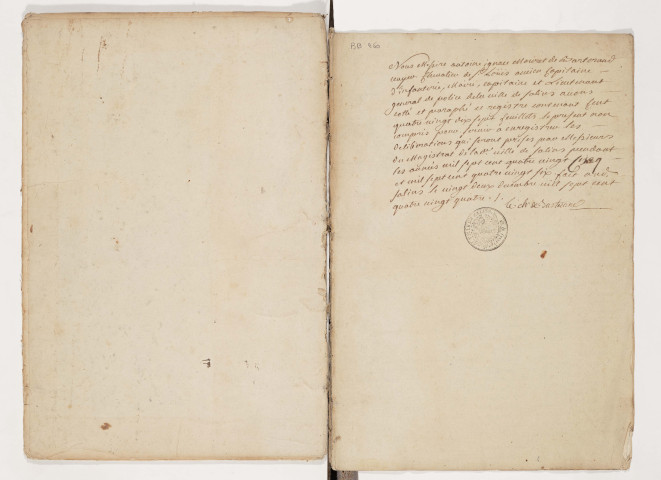 BB 960
Nous Messire antoine, ignace
Ecuyer Chevalier de St Louis ancien Capitaine
d'infanterie, Maire, capitaine et Lieutenant
general de police de la ville de Salins avons
cotté et paraphé ce registre contenant Cent
quatre vingt dix sept feuillets le present non
compris pour servir a enregistrer les
deliberations qui seront prises par Messieurs
du Magistrat de lad.e ville de Salins pendant
les années mil sept cent quatre vingt Cinq
et mil sept cent quatre vingt six fait aud.
Salins le vingt deux decembre mil sept cent
quatre vingt quatre ./.